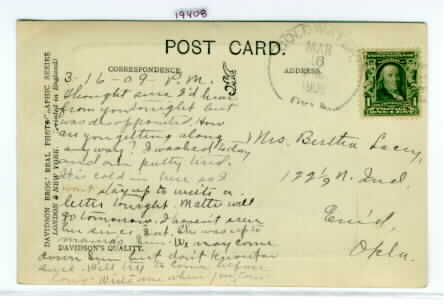 19408
POST CARD.
CORRESPONDENCE
ADDRESS.
DAVIDSON BROS.' REAL PHOTOGRAPHIC SERIES
LONDON & NEW YORK.
MAR
16
1909
3-16-09 P.M.
Thought sure I'd hear
from you tonight but
was disappointed. How
are you getting along
anyway? I washed today
and am pretty tired.
It's cold in here so I
wont stay up to write a
letter tonight. Matte will
go tomorrow. I haven't seen
her since Sat. She was up to
mamas Sun. We may come
down Sun but don't know for
sure. Will try to come before
long. Write me when you can.
Mrs. Bertha Lacey,
122½ N. Ind.
Enid,
Okla.
DAVIDSON'S QUALITY.